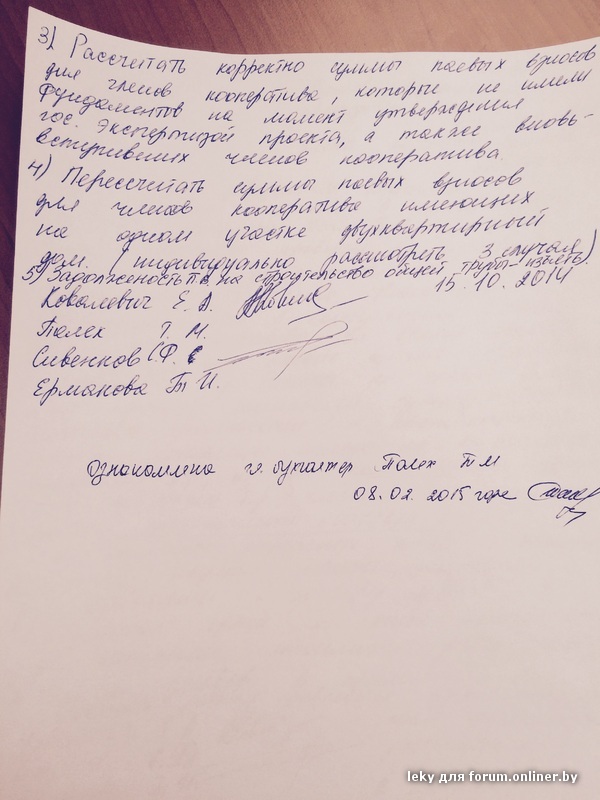 3) Рассчитать корректно суммы паевых взносов
для членов кооператива, которые не имели
фундаментов на момент утверждения
гос. Экспертизой проекта, а также вновь-
вступивших членов кооператива.
4) Пересчитать суммы паевых взносов
для членов кооператива имеющих
на одном участке двухквартирный
дом. (индивидуально рассмотреть 3 случая)
5) Задолженность на строительство общей трубы
15.10.2014
Ковалевич Е. А.
Полех Т. М.
Сивенков С.Ф.
Ермакова Т. И.
Ознакомлена гл. бухгалтер Полех ТМ
08.02.2015 года
leky для forum.onliner.by